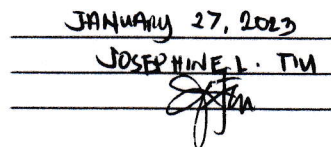 JANUARY 27, 2023
JOSEPHINE L. TIU